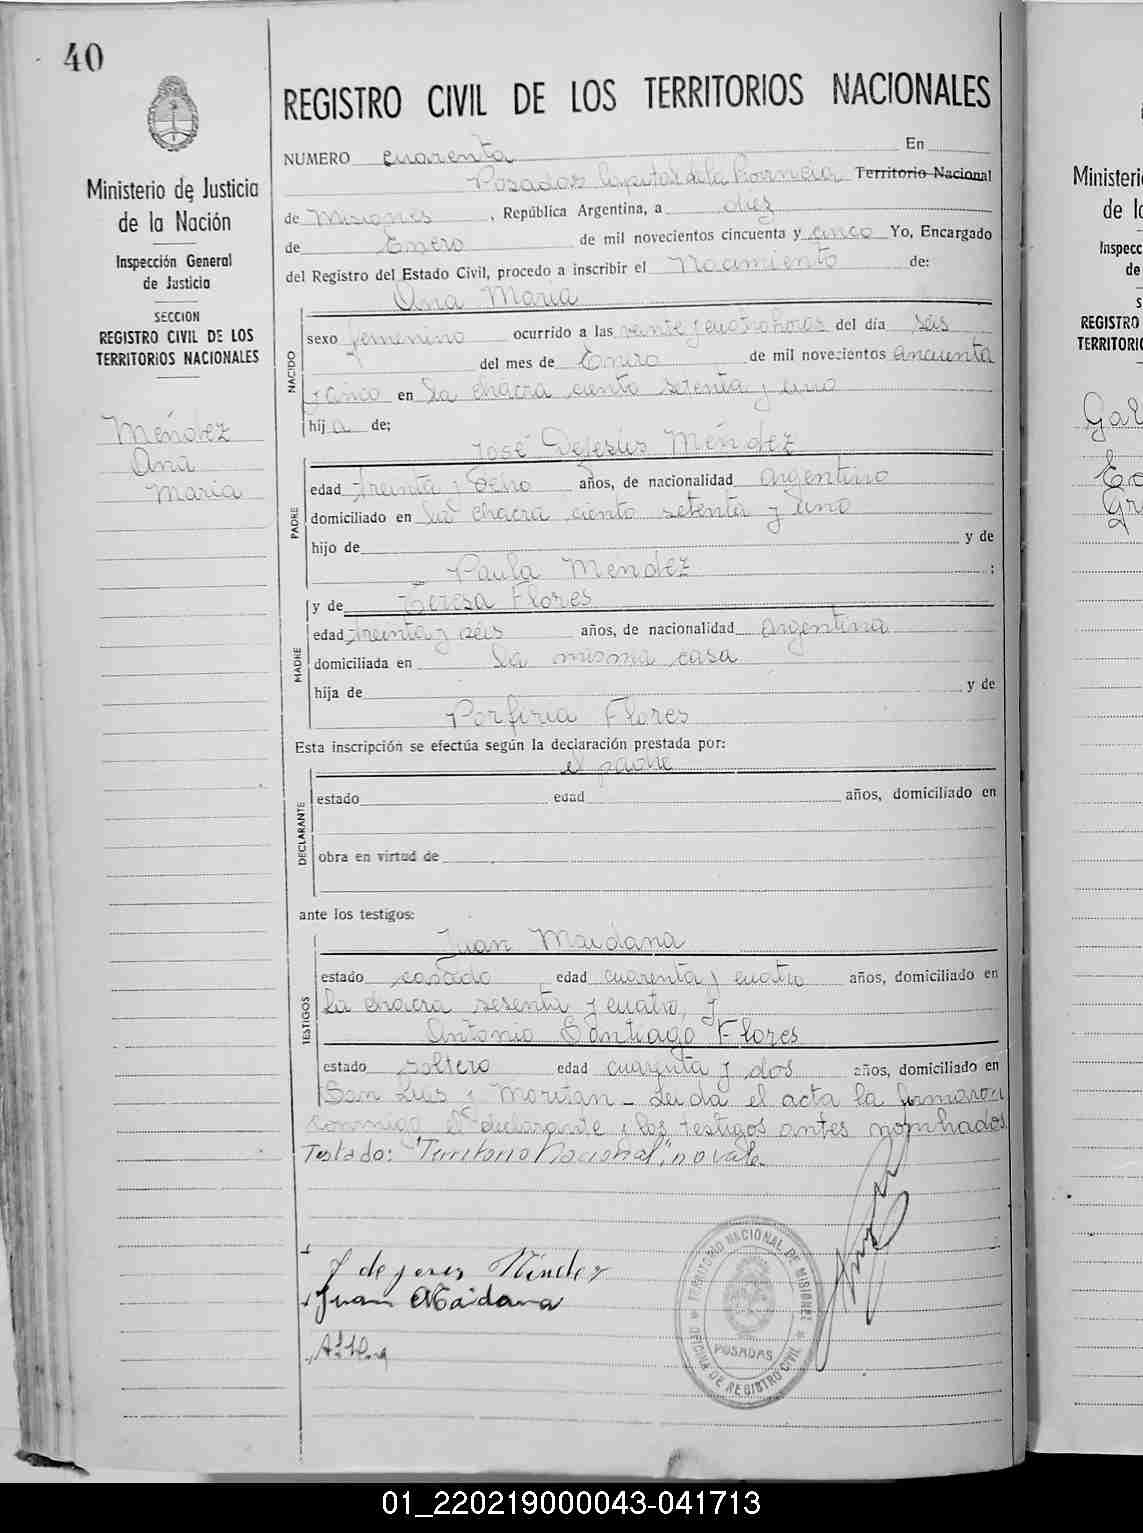 40
REGISTRO CIVIL DE LOS TERRITORIOS NACIONALES
Ministerio de Justicia
de la Nación
Inspección General
de Justicia
SECCION
REGISTRO CIVIL DE LOS
TERRITORIOS NACIONALES
Méndez
Ana
María
NUMERO cuarenta En
Posadas Capital de la Provincia Territorio Nacional
de Misiones, República Argentina, a diez
de Enero de mil novecientos cincuenta y cinco Yo, Encargado
del Registro del Estado Civil, procedo a inscribir el Nacimiento de:
Ana María
NACIDO
sexo femenino ocurrido a las veinte y cuatro horas del día seis
del mes de Enero de mil novecientos cincuenta
y cinco en la chacra ciento setenta y uno
hija de:
José Dejesús Méndez
PADRE
edad treinta y ocho años, de nacionalidad argentino
domiciliado en la chacra ciento setenta y uno
hijo de y de
Paula Mendez ;
y de Teresa Flores
MADRE
edad treinta y séis años, de nacionalidad argentina
domiciliada en la misma casa
hija de y de
Porfiria Flores
Esta inscripción se efectúa según la declaración prestada por:
el padre
DECLARANTE
estado edad años, domiciliado en
obra en virtud de
ante los testigos:
Juan Maidana
TESTIGOS
estado casado edad cuarenta y cuatro años, domiciliado en
la chacra sesenta y cuatro, y
Antonio Santiago Flores
estado soltero edad cuarenta y dos años, domiciliado en
San Luis y Moritán - Leída el acta la firmaron
conmigo el declarante y los testigos antes nombrados
Testado: "Territorio Nacional", no vale.
J dejesus Méndez
Juan Maidana
TERRITORIO NACIONAL DE MISIONES
POSADAS
OFICINA DE REGISTRO CIVIL
Ministeri
de l
Inspecc
de
S
REGISTRO
TERRITORIO
Gal
Gr
01_220219000043-041713